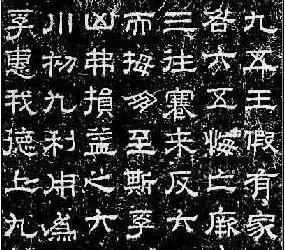 九五王假有家
咎六五悔亡厥
三往蹇來反六
而拇朋至斯孚
凶弗損益之大
川初九利用為
孚惠我德上九